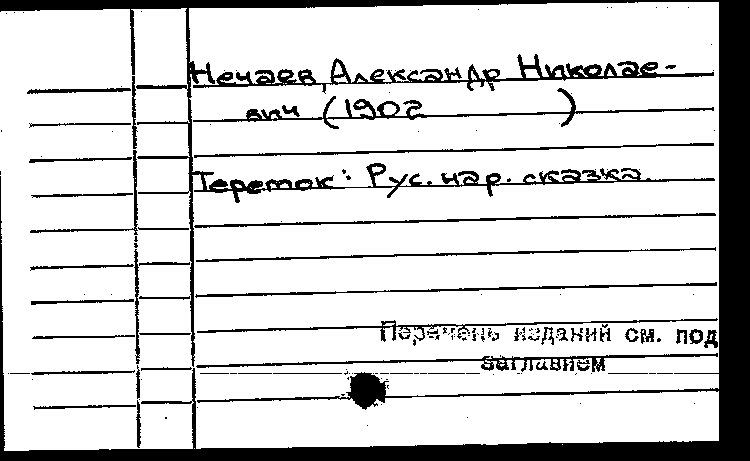 Нечаев, Александр Николае-
вич (1902 )
Теремок: Рус. нар. сказка.
Перечень изданий см. под
заглавием